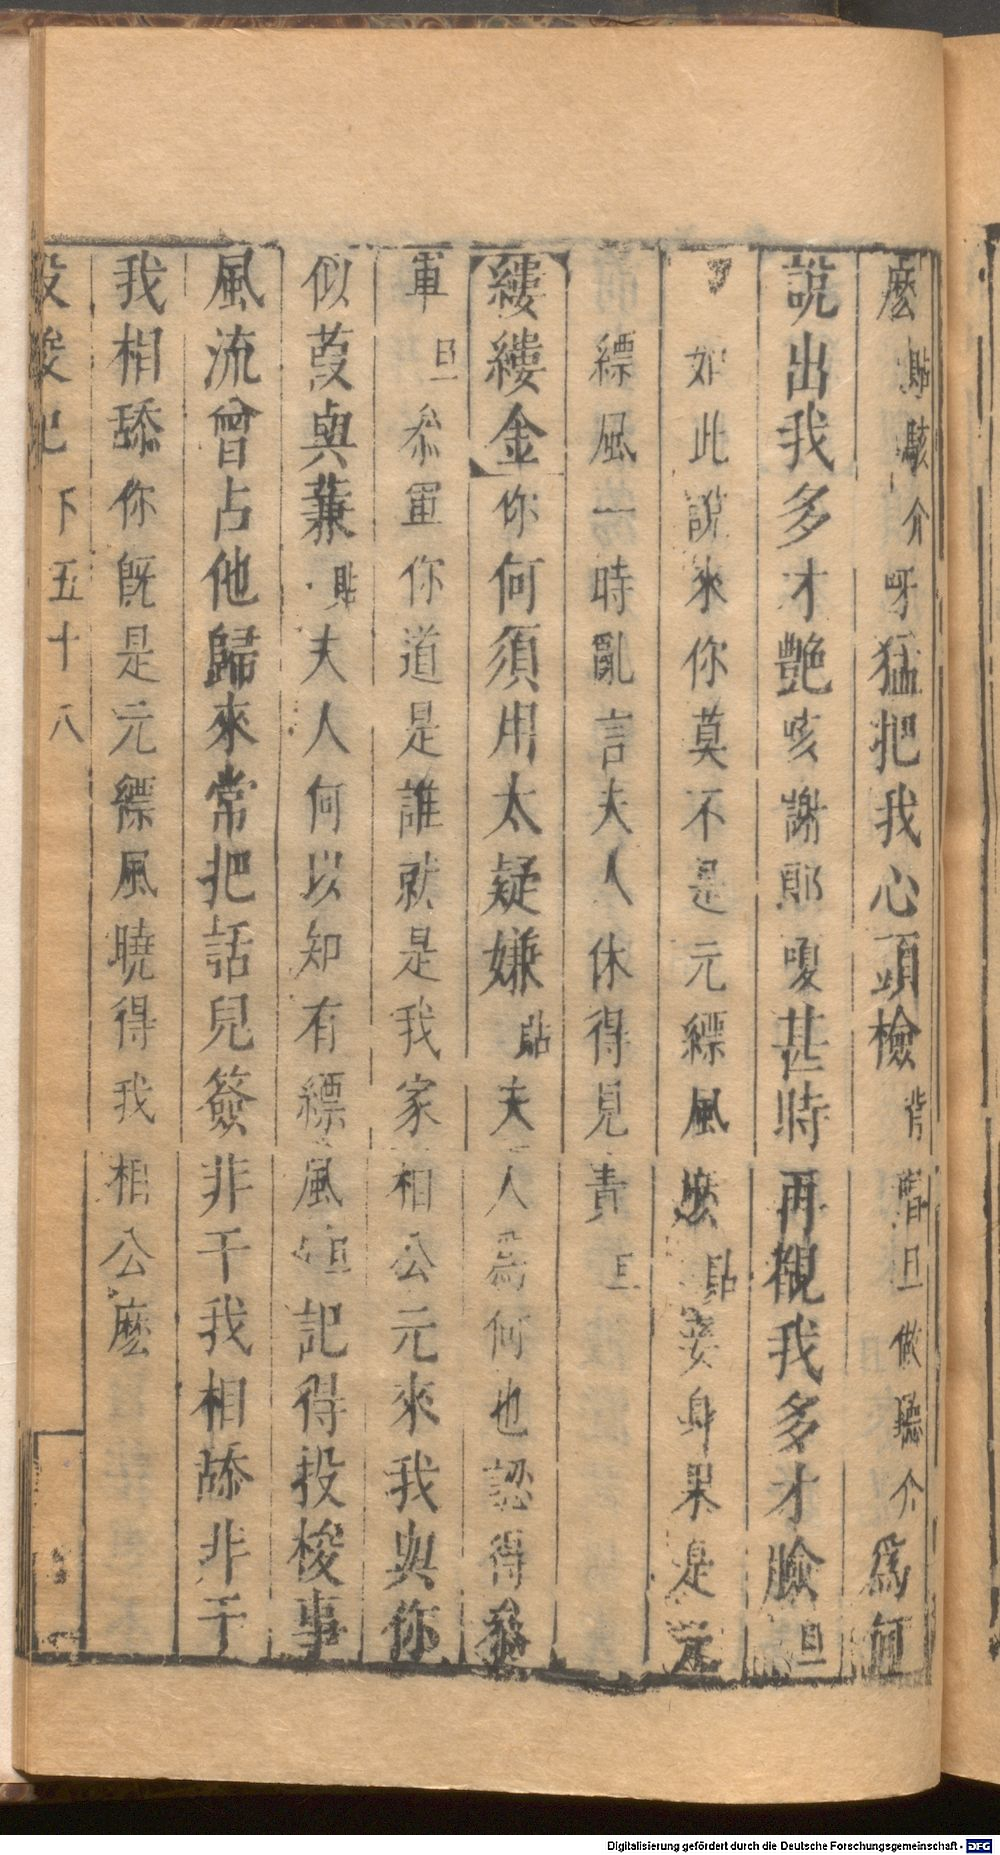 麽貼駭介呀猛把我心頭檢背省旦做聽介爲何
說出我多才艷咳謝郎嗄甚時再覩我多才臉旦
如此說來你莫不是元縹風麽貼妾身果是元
縹風一時亂言夫人休得見責旦
縷縷金你何須用太疑嫌貼夫人爲何也認得叅
軍旦叅軍你道是誰就是我家相公元來我與你
似葭與蒹貼夫人何以知有縹風旦記得投梭事
風流曾占他歸來常把話兒簽非干我相舔非干
我相舔你旣是元縹風曉得我相公麽
投梭記 下 五十八
Digitalisierung gefördert durch die Deutsche Forschungsgemeinschaft - DFG